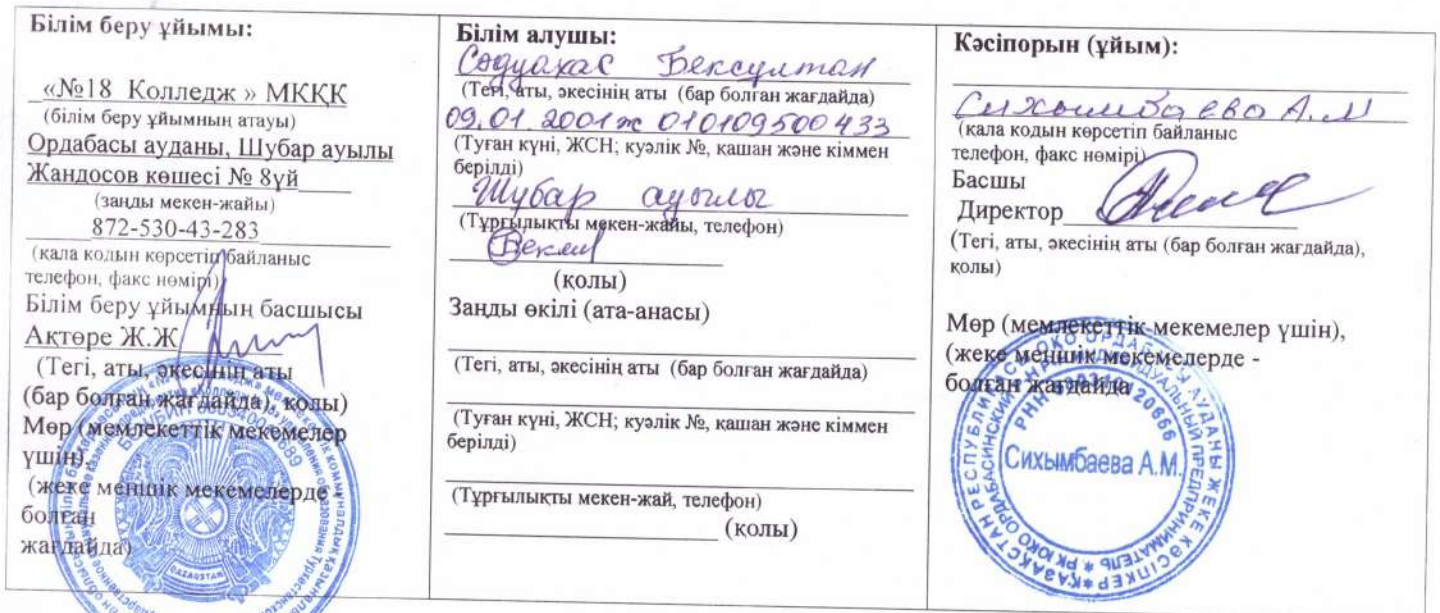 Білім беру ұйымы:
«№18 Колледж » МКҚК
(білім беру ұйымның атауы)
Ордабасы ауданы, Шубар ауылы
Жандосов көшесі № 8үй
(заңды мекен-жайы)
872-530-43-283
(қала кодын көрсетіп байланыс
телефон, факс нөмірі)
Білім беру ұйымның басшысы
Ақтөре Ж.Ж
(Тегі, аты, әкесінің аты
(бар болған жағдайда), қолы)
Мөр (мемлекеттік мекемелер
үшін)
(жеке меншік мекемелерде -
болған
жағдайда)
QAZAQSTAN
Білім алушы:
Садуахас Бексултан
(Тегі, аты, әкесінің аты (бар болған жағдайда)
09.01.2001ж 010109500433
(Туған күні, ЖСН; куәлік №, қашан және кіммен
берілді)
Шубар ауылы
(Тұрғылықты мекен-жайы, телефон)
(қолы)
Заңды өкілі (ата-анасы)
(Тегі, аты, әкесінің аты (бар болған жағдайда)
(Туған күні, ЖСН; куәлік №, қашан және кіммен
берілді)
(Тұрғылықты мекен-жай, телефон)
(қолы)
Кәсіпорын (ұйым):
Сихымбаева А.М
(қала кодын көрсетіп байланыс
телефон, факс нөмірі)
Басшы
Директор
(Тегі, аты, әкесінің аты (бар болған жағдайда),
қолы)
Мөр (мемлекеттік мекемелер үшін),
(жеке меншік мекемелерде -
болған жағдайда
ҚАЗАҚСТАН РЕСПУБЛИКАСЫ ОҚО ОРДАБАСЫ АУДАНЫ ЖЕКЕ КӘСІПКЕР
РК ЮКО ОРДАБАСИНСКИЙ ИНДИВИДУАЛЬНЫЙ ПРЕДПРИНИМАТЕЛЬ
РНН
Сихымбаева А.М.